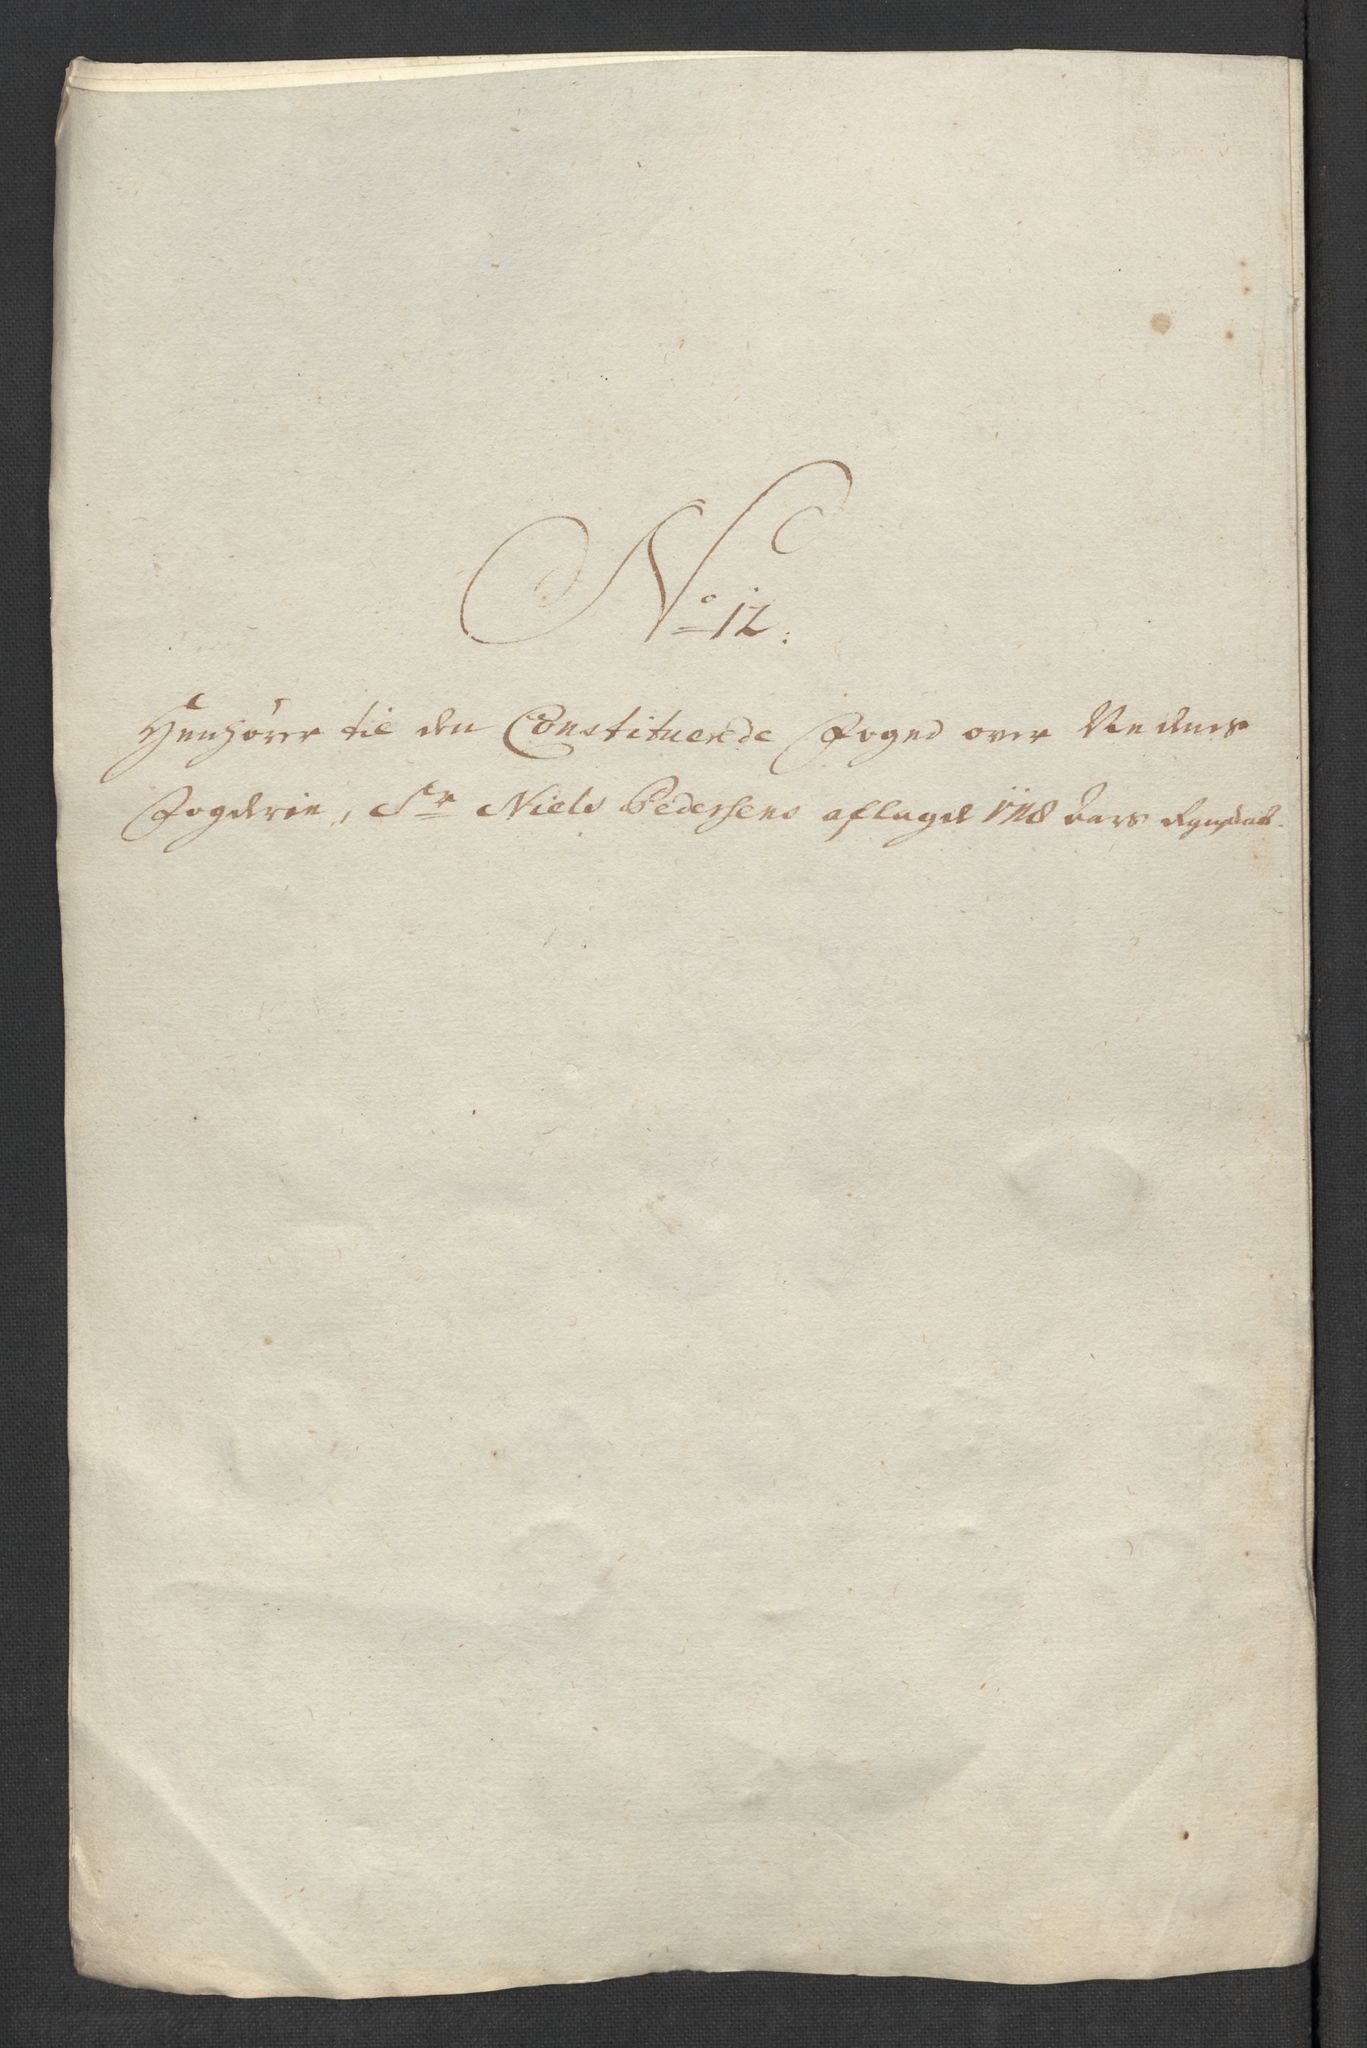 No 12.
Henhörer til den Constituerede Foged over Nedenes
Fogderie, Sr Niels Pedersens aflagde 1718 Aars Regnskab.